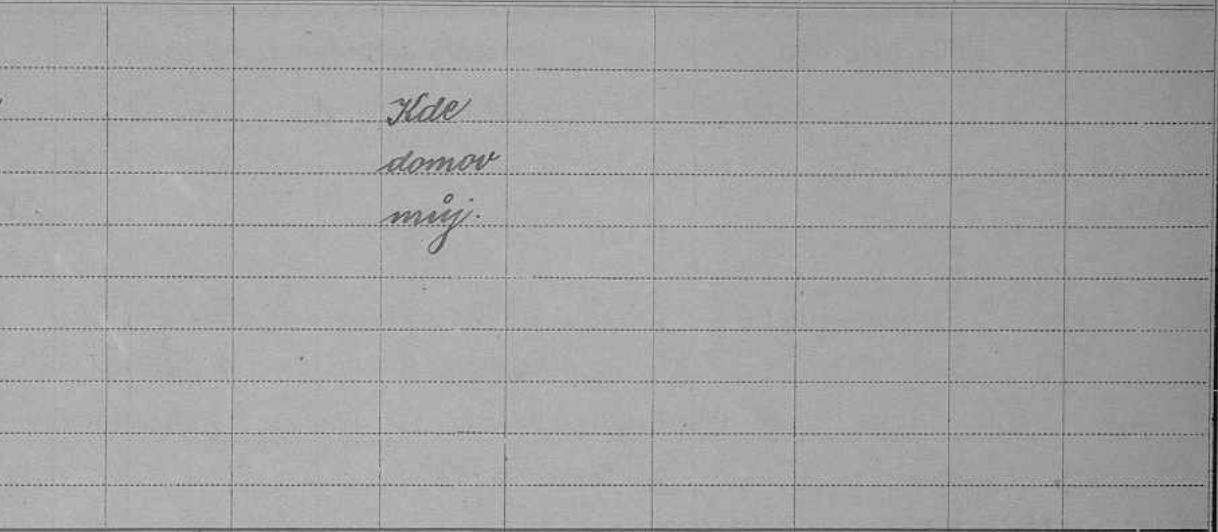 Kde
domov
můj.